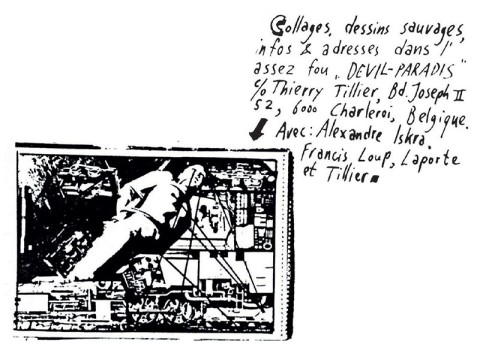 Collages, dessins sauvages,
infos & adresses dans l'
assez fou „DEVIL-PARADIS"
c/o Thierry Tillier, Bd. Joseph II
52, 6000 Charleroi, Belgique.
Avec: Alexandre Iskra.
Francis, Loup, Laporte
et Tillier